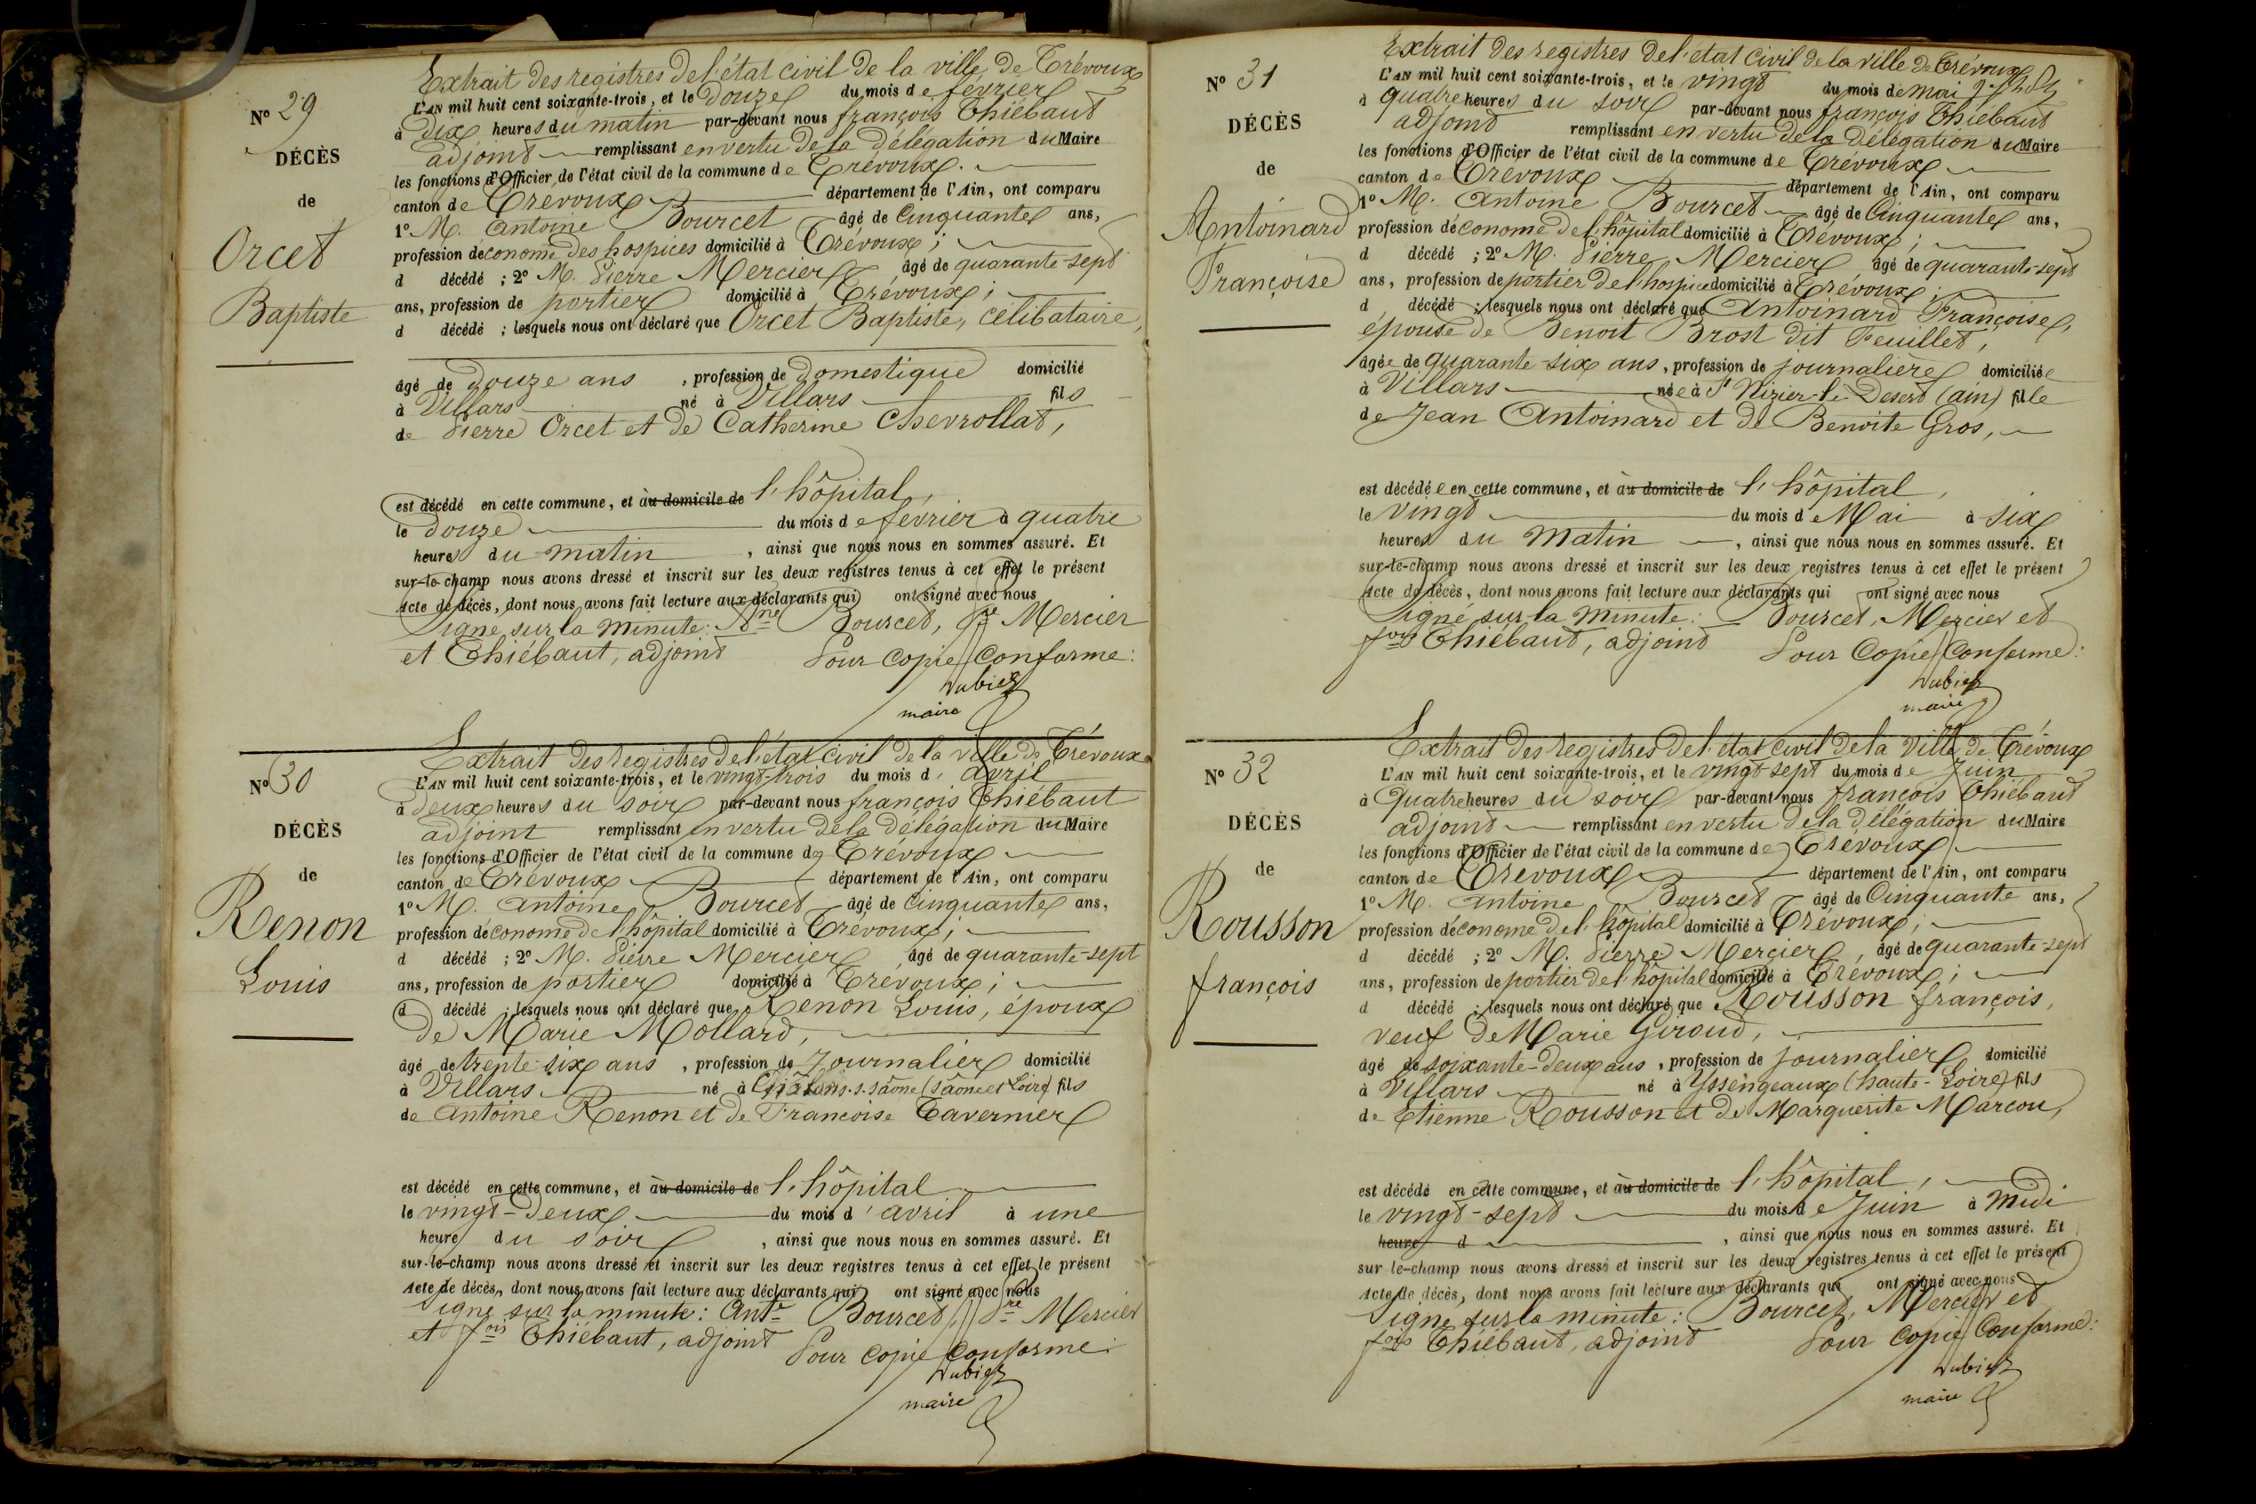 Extrait des registres de l'état civil de la ville de Trévoux
N° 29
L'AN mil huit cent soixante-trois, et le douze du mois de février
à dix heures du matin par-devant nous françois Thiébaut
DÉCÈS
adjoint remplissant en vertu de la délégation du Maire
les fonctions d'Officier de l'état civil de la commune de Trévoux.
de
canton de Trévoux département de l'Ain, ont comparu
1° M. Antoine Bourcet âgé de Cinquante ans,
Orcet
profession d'économe des hospices domicilié à Trévoux;
d décédé ; 2° M. Pierre Mercier âgé de quarante-sept
Baptiste
ans, profession de portier domicilié à Trévoux;
d décédé ; lesquels nous ont déclaré que Orcet Baptiste, célibataire,
âgé de douze ans, profession de domestique domicilié
à Villars né à Villars fils
de Pierre Orcet et de Catherine Chevrollat,
est décédé en cette commune, et au domicile de l'hôpital,
le douze du mois de février à quatre
heures du matin, ainsi que nous nous en sommes assuré. Et
sur-le-champ nous avons dressé et inscrit sur les deux registres tenus à cet effet le présent
acte de décès, dont nous avons fait lecture aux déclarants qui ont signé avec nous
Signé sur la minute: Ane Bourcet, Pre Mercier
et Thiébaut, adjoint Pour copie Conforme:
Dubiez
maire
Extrait des registres de l'état civil de la ville de Trévoux
N° 30
L'AN mil huit cent soixante-trois, et le vingt-trois du mois d'avril
à deux heures du soir par-devant nous françois Thiébaut
DÉCÈS
adjoint remplissant en vertu de la délégation du Maire
les fonctions d'Officier de l'état civil de la commune de Trévoux
de
canton de Trévoux département de l'Ain, ont comparu
1° M. Antoine Bourcet âgé de Cinquante ans,
Renon
profession d'économe de l'hôpital domicilié à Trévoux;
d décédé ; 2° M. Pierre Mercier âgé de quarante-sept
Louis
ans, profession de portier domicilié à Trévoux;
d décédé ; lesquels nous ont déclaré que Renon Louis, époux
de Marie Mollard,
âgé de trente-six ans, profession de Journalier domicilié
à Villars né à Châlons-s-Sâone (Sâone et Loire) fils
de Antoine Renon et de Francoise Tavernier
est décédé en cette commune, et au domicile de l'hôpital
le vingt-deux du mois d'avril à une
heure du soir, ainsi que nous nous en sommes assuré. Et
sur-le-champ nous avons dressé et inscrit sur les deux registres tenus à cet effet le présent
acte de décès, dont nous avons fait lecture aux déclarants qui ont signé avec nous
Signé sur la minute: Ante Bourcet, Pre Mercier
et fois Thiébaut, adjoint Pour copie conforme:
Dubiez
maire
Extrait des registres de l'état civil de la ville de Trévoux
N° 31
L'AN mil huit cent soixante-trois, et le vingt du mois de mai
à quatre heures du soir par-devant nous françois Thiébaut
DÉCÈS
adjoint remplissant en vertu de la délégation du Maire
les fonctions d'Officier de l'état civil de la commune de Trévoux
de
canton de Trévoux département de l'Ain, ont comparu
1° M. Antoine Bourcet âgé de Cinquante ans,
Antoinard
profession d'économe de l'hôpital domicilié à Trévoux;
d décédé ; 2° M. Pierre Mercier âgé de quarante-sept
Françoise
ans, profession de portier de l'hospice domicilié à Trévoux;
d décédé ; lesquels nous ont déclaré que Antoinard Françoise,
épouse de Benoit Brost dit Feuillet,
âgée de quarante-six ans, profession de journalière domiciliée
à Villars née à St Nizier-le-Desert (ain) fille
de Jean Antoinard et de Benoite Gros,
est décédée en cette commune, et au domicile de l'hôpital,
le vingt du mois de Mai à six
heures du Matin, ainsi que nous nous en sommes assuré. Et
sur-le-champ nous avons dressé et inscrit sur les deux registres tenus à cet effet le présent
acte de décès, dont nous avons fait lecture aux déclarants qui ont signé avec nous
Signé sur la minute: Bourcet, Mercier et
fois Thiébaut, adjoint Pour Copie Conforme:
Dubiez
maire
Extrait des registres de l'état civil de la ville de Trévoux
N° 32
L'AN mil huit cent soixante-trois, et le vingt-sept du mois de Juin
à Quatre heures du soir par-devant nous françois Thiébaut
DÉCÈS
adjoint remplissant en vertu de la délégation du Maire
les fonctions d'Officier de l'état civil de la commune de Trévoux
de
canton de Trévoux département de l'Ain, ont comparu
1° M. Antoine Bourcet âgé de Cinquante ans,
Rousson
profession d'économe de l'hôpital domicilié à Trévoux;
d décédé ; 2° M. Pierre Mercier, âgé de quarante-sept
françois
ans, profession de portier de l'hôpital domicilié à Trévoux;
d décédé ; lesquels nous ont déclaré que Rousson françois,
veuf de Marie Giroud,
âgé de soixante-deux ans, profession de journalier domicilié
à Villars né à Yssengeaux (haute-Loire) fils
de Etienne Rousson et de Marguerite Marcou,
est décédé en cette commune, et au domicile de l'hôpital,
le vingt-sept du mois de Juin à Midi
heure d, ainsi que nous nous en sommes assuré. Et
sur le-champ nous avons dressé et inscrit sur les deux registres tenus à cet effet le présent
acte de décès, dont nous avons fait lecture aux déclarants qui ont signé avec nous
Signé sur la minute: Bourcet, Mercier et
fois Thiébaut, adjoint Pour Copie Conforme:
Dubiez
maire